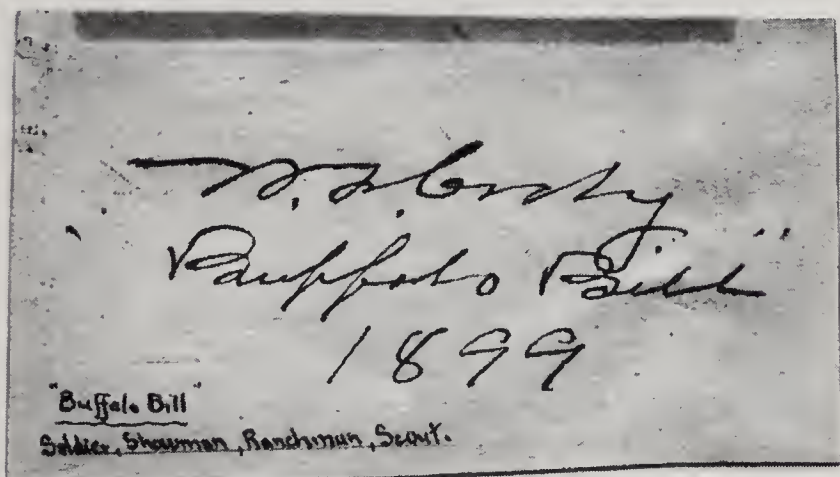 W. F. Cody
"Buffalo Bill"
1899
"Buffalo Bill"
Soldier, Showman, Ranchman, Scout.